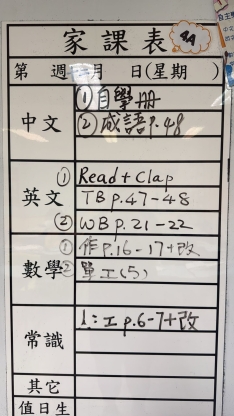 家課表 4A
第 週 月 日(星期 )
中文 ①自學冊
②成語p.48
英文 ① Read + Clap
TB p.47-48
② WB p.21-22
數學 ① 作p.16-17+改
② 單工(5)
常識 1:工p.6-7+改
其它
值日生